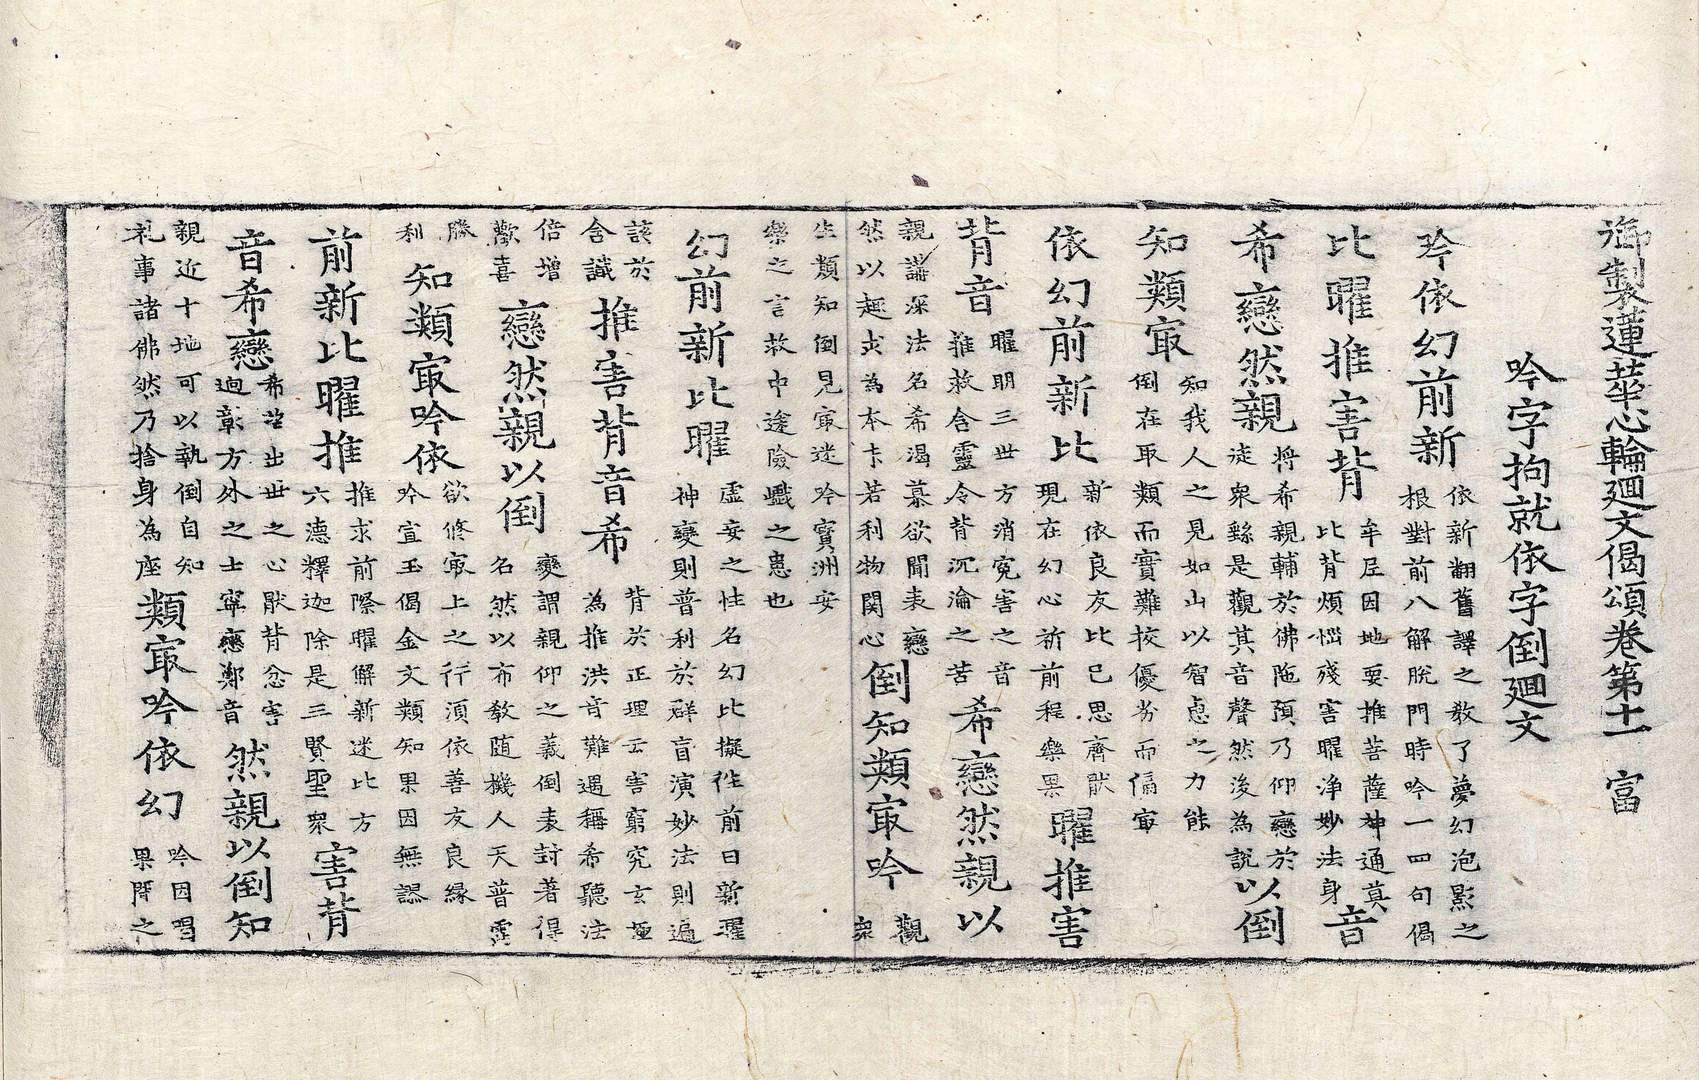 御製蓮華心輪廻文偈頌卷第十一　富
吟字拘就依字倒廻文
吟依幻前新
依新翻舊譯之教了夢幻泡影之
根對前八解脫門時吟一四句偈
比曜推害背
牟尼因地要推菩薩神通莫
比背煩惱殘害曜淨妙法身
音
希戀然親
將希親輔於佛陁預乃仰戀於
徒眾繇是觀其音聲然後為說
以倒
知類㝡
知我人之見如山以智慧之力能
倒在取類而實難校優劣而偏㝡
依幻前新比
新依良友比已思齊猒
現在幻心祈前程樂果
曜推害
背音
曜明三世方消寃害之音
推救含靈令背沉淪之苦
希戀然親以
親講深法名希渴慕欲聞表戀
然以趣求為本末若利物関心
倒知類㝡吟
觀
眾
生類知倒見㝡迷吟寶洲安
樂之言救中途險巇之患也
幻前新比曜
虛妄之性名幻比擬性前日新曜
神變則普利於群盲演妙法則遍
該於
含識
推害背音希
背於正理云害窮究玄極
為推洪音難遇稱希聽法
倍增
歡喜
戀然親以倒
變謂親仰之義倒表封著得
名然以布教随機人天普霑
勝
利
知類㝡吟依
欲修㝡上之行須依善友良緣
吟宣玉偈金文類知果因無謬
前新比曜推
推求前際曜解新迷比方
六德釋迦除是三賢聖眾
害背
音希戀
希望出世之心猒背忿害
迥彰方外之士寧戀鄭音
然親以倒知
親近十地可以執倒自知
礼事諸佛然乃捨身為座
類㝡吟依幻
吟因習
果所之